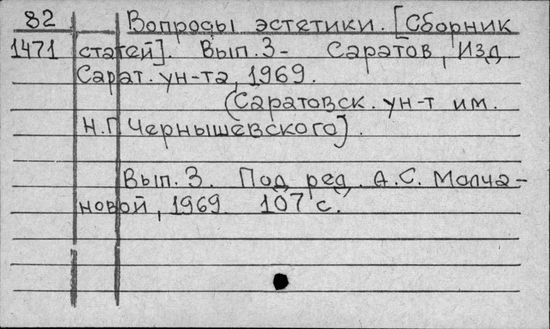 82 Вопросы эстетики. [Сборник
1471 статей]. Вып. 3- Саратов, Изд.
Сарат. ун-та, 1969.
(Саратовск. ун-т им.
Н.Г Чернышевского].
Вып. 3. Под ред. А.С. Молча-
новой, 1969. 107 с.